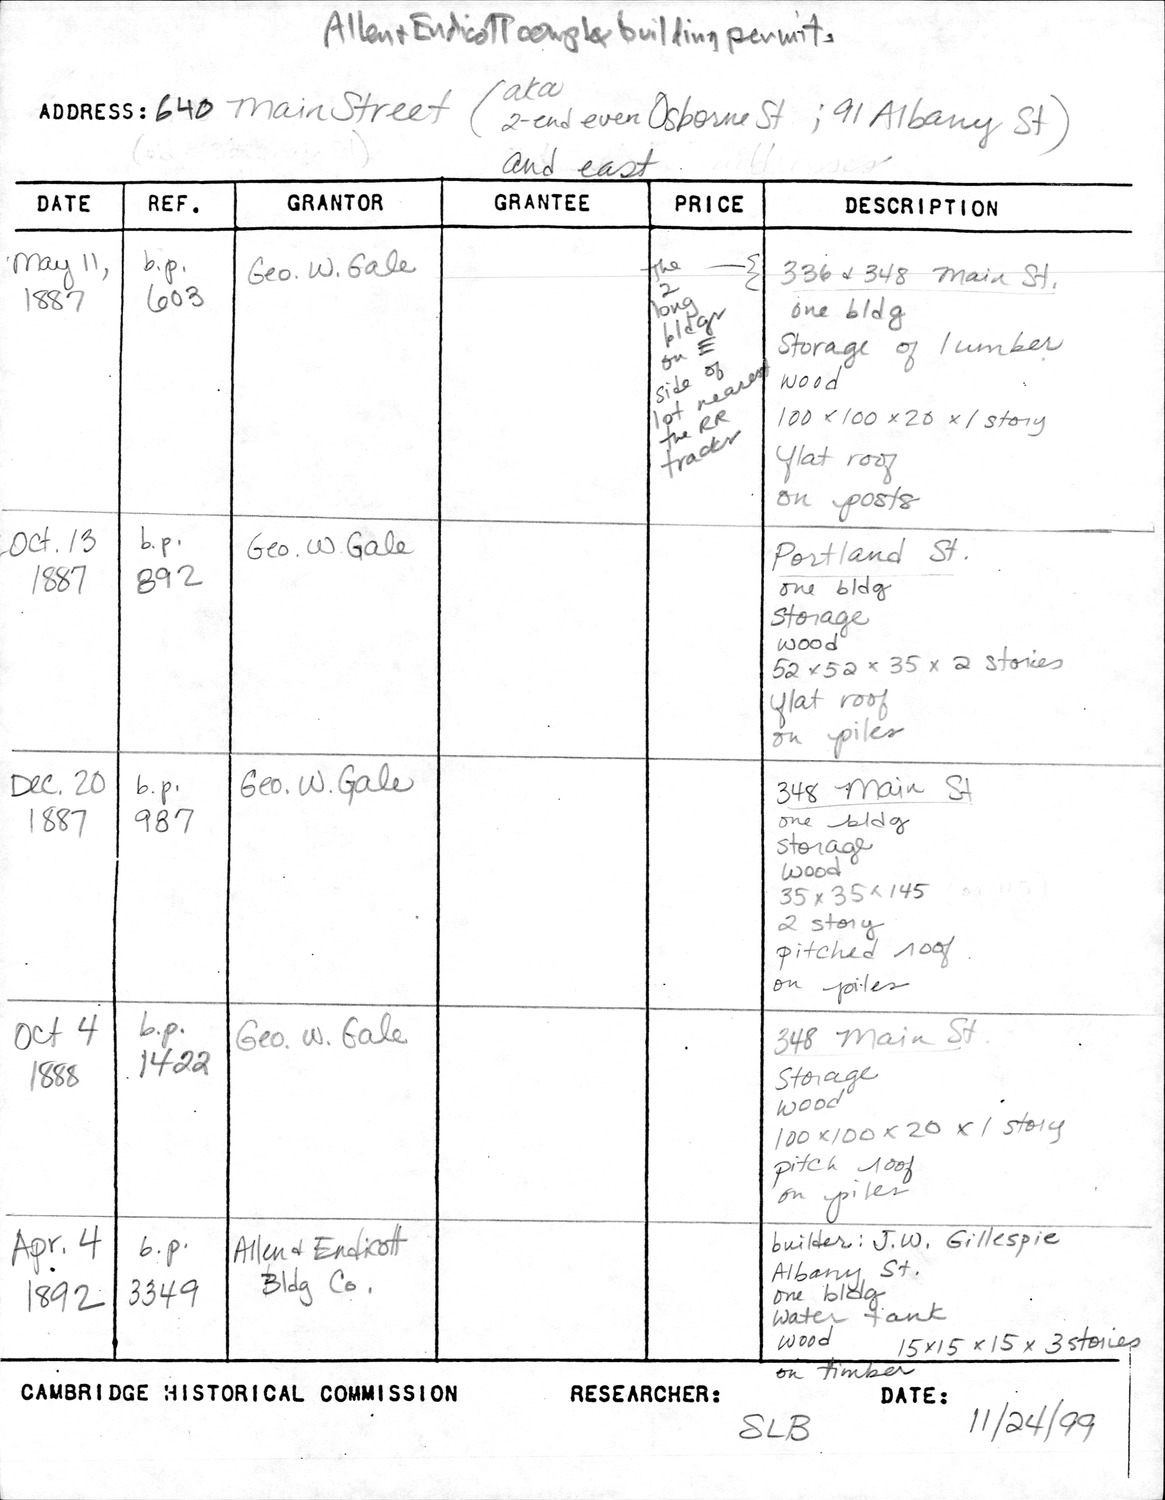 Allen & Endicott complex building permits
ADDRESS: 640 Main Street (aka
2-end even Osborne St ; 91 Albany St)
and east
DATE REF. GRANTOR GRANTEE PRICE DESCRIPTION
May 11,
1887
b.p.
603
Geo. W. Gale
the
2
long
bldgs
on E
side of
lot nearest
the RR
tracks
336 & 348 Main St.
one bldg
Storage of lumber
wood
100 x 100 x 20 x 1 story
flat roof
on posts
Oct. 13
1887
b.p.
892
Geo. W. Gale
Portland St.
one bldg
storage
wood
52 x 52 x 35 x 2 stories
flat roof
on piles
Dec. 20
1887
b.p.
987
Geo. W. Gale
348 Main St
one bldg
storage
wood
35 x 35 x 145
2 story
pitched roof
on piles
Oct 4
1888
b.p.
1422
Geo. W. Gale
348 Main St.
Storage
wood
100 x 100 x 20 x 1 story
pitch roof
on piles
Apr. 4
1892
b.p.
3349
Allen & Endicott
Bldg Co.
builder: J.W. Gillespie
Albany St.
one bldg
water tank
wood 15x15 x 15 x 3 stories
on timber
CAMBRIDGE HISTORICAL COMMISSION RESEARCHER: DATE:
SLB 11/24/99